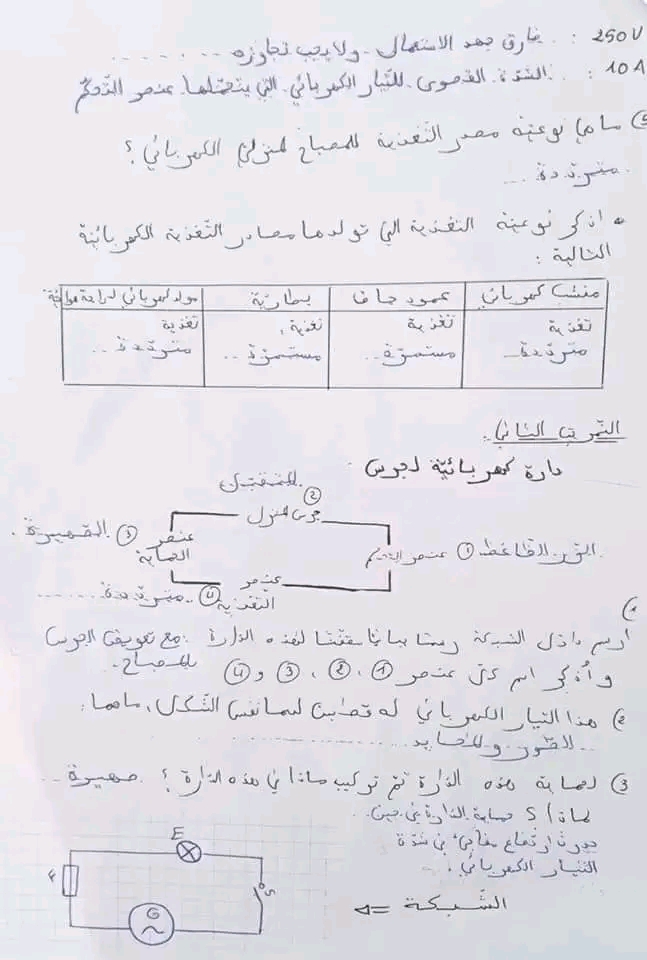 250V : فارق جهد الاستعمال ولا يجب تجاوزه ........
10A : الشدّة القصوى للتيار الكهربائي التي يتحمّلها عنصر التحكّم
5) ما هي نوعية مصدر التغذية للمصباح المنزلي الكهربائي ؟
متردّدة ...
• اذكر نوعية التغذية التي تولدها مصادر التغذية الكهربائية
التالية :
منشب كهربائي | عمود جاف | بطارية | مولد كهربائي لدراجة هوائية
تغذية | تغذية | تغذية | تغذية
متردّدة... | مستمرّة.. | مستمرّة... | متردّدة...
التمرين الثاني :
دارة كهربائيّة لجرس
المتقبّل
②
جرس المنزل
القاطعة ① عنصر التحكم
عنصر ③ الصهيرة ...
الحماية
عنصر
التغذية ④ متردّدة .......
1)
أرسم داخل الشبكة رسما بيانيا مقننا لهذه الدّارة مع تعويض الجرس
بالمصباح.
وأذكر اسم كلّ عنصر ① ، ② ، ③ و ④
2) هذا التيار الكهربائي له قطبين ليسا نفس الشكل، ماهما :
الطور والمحايد ...............
3) لحماية هذه الدّارة تمّ تركيب ماذا في هذه الدّارة ؟ صهيرة ...
لماذا ؟ حماية الدّارة في حين
حدوث ارتفاع مفاجئ في شدّة
التيار الكهربائي.
الشّبكة ⇐
E
F
S
G
~